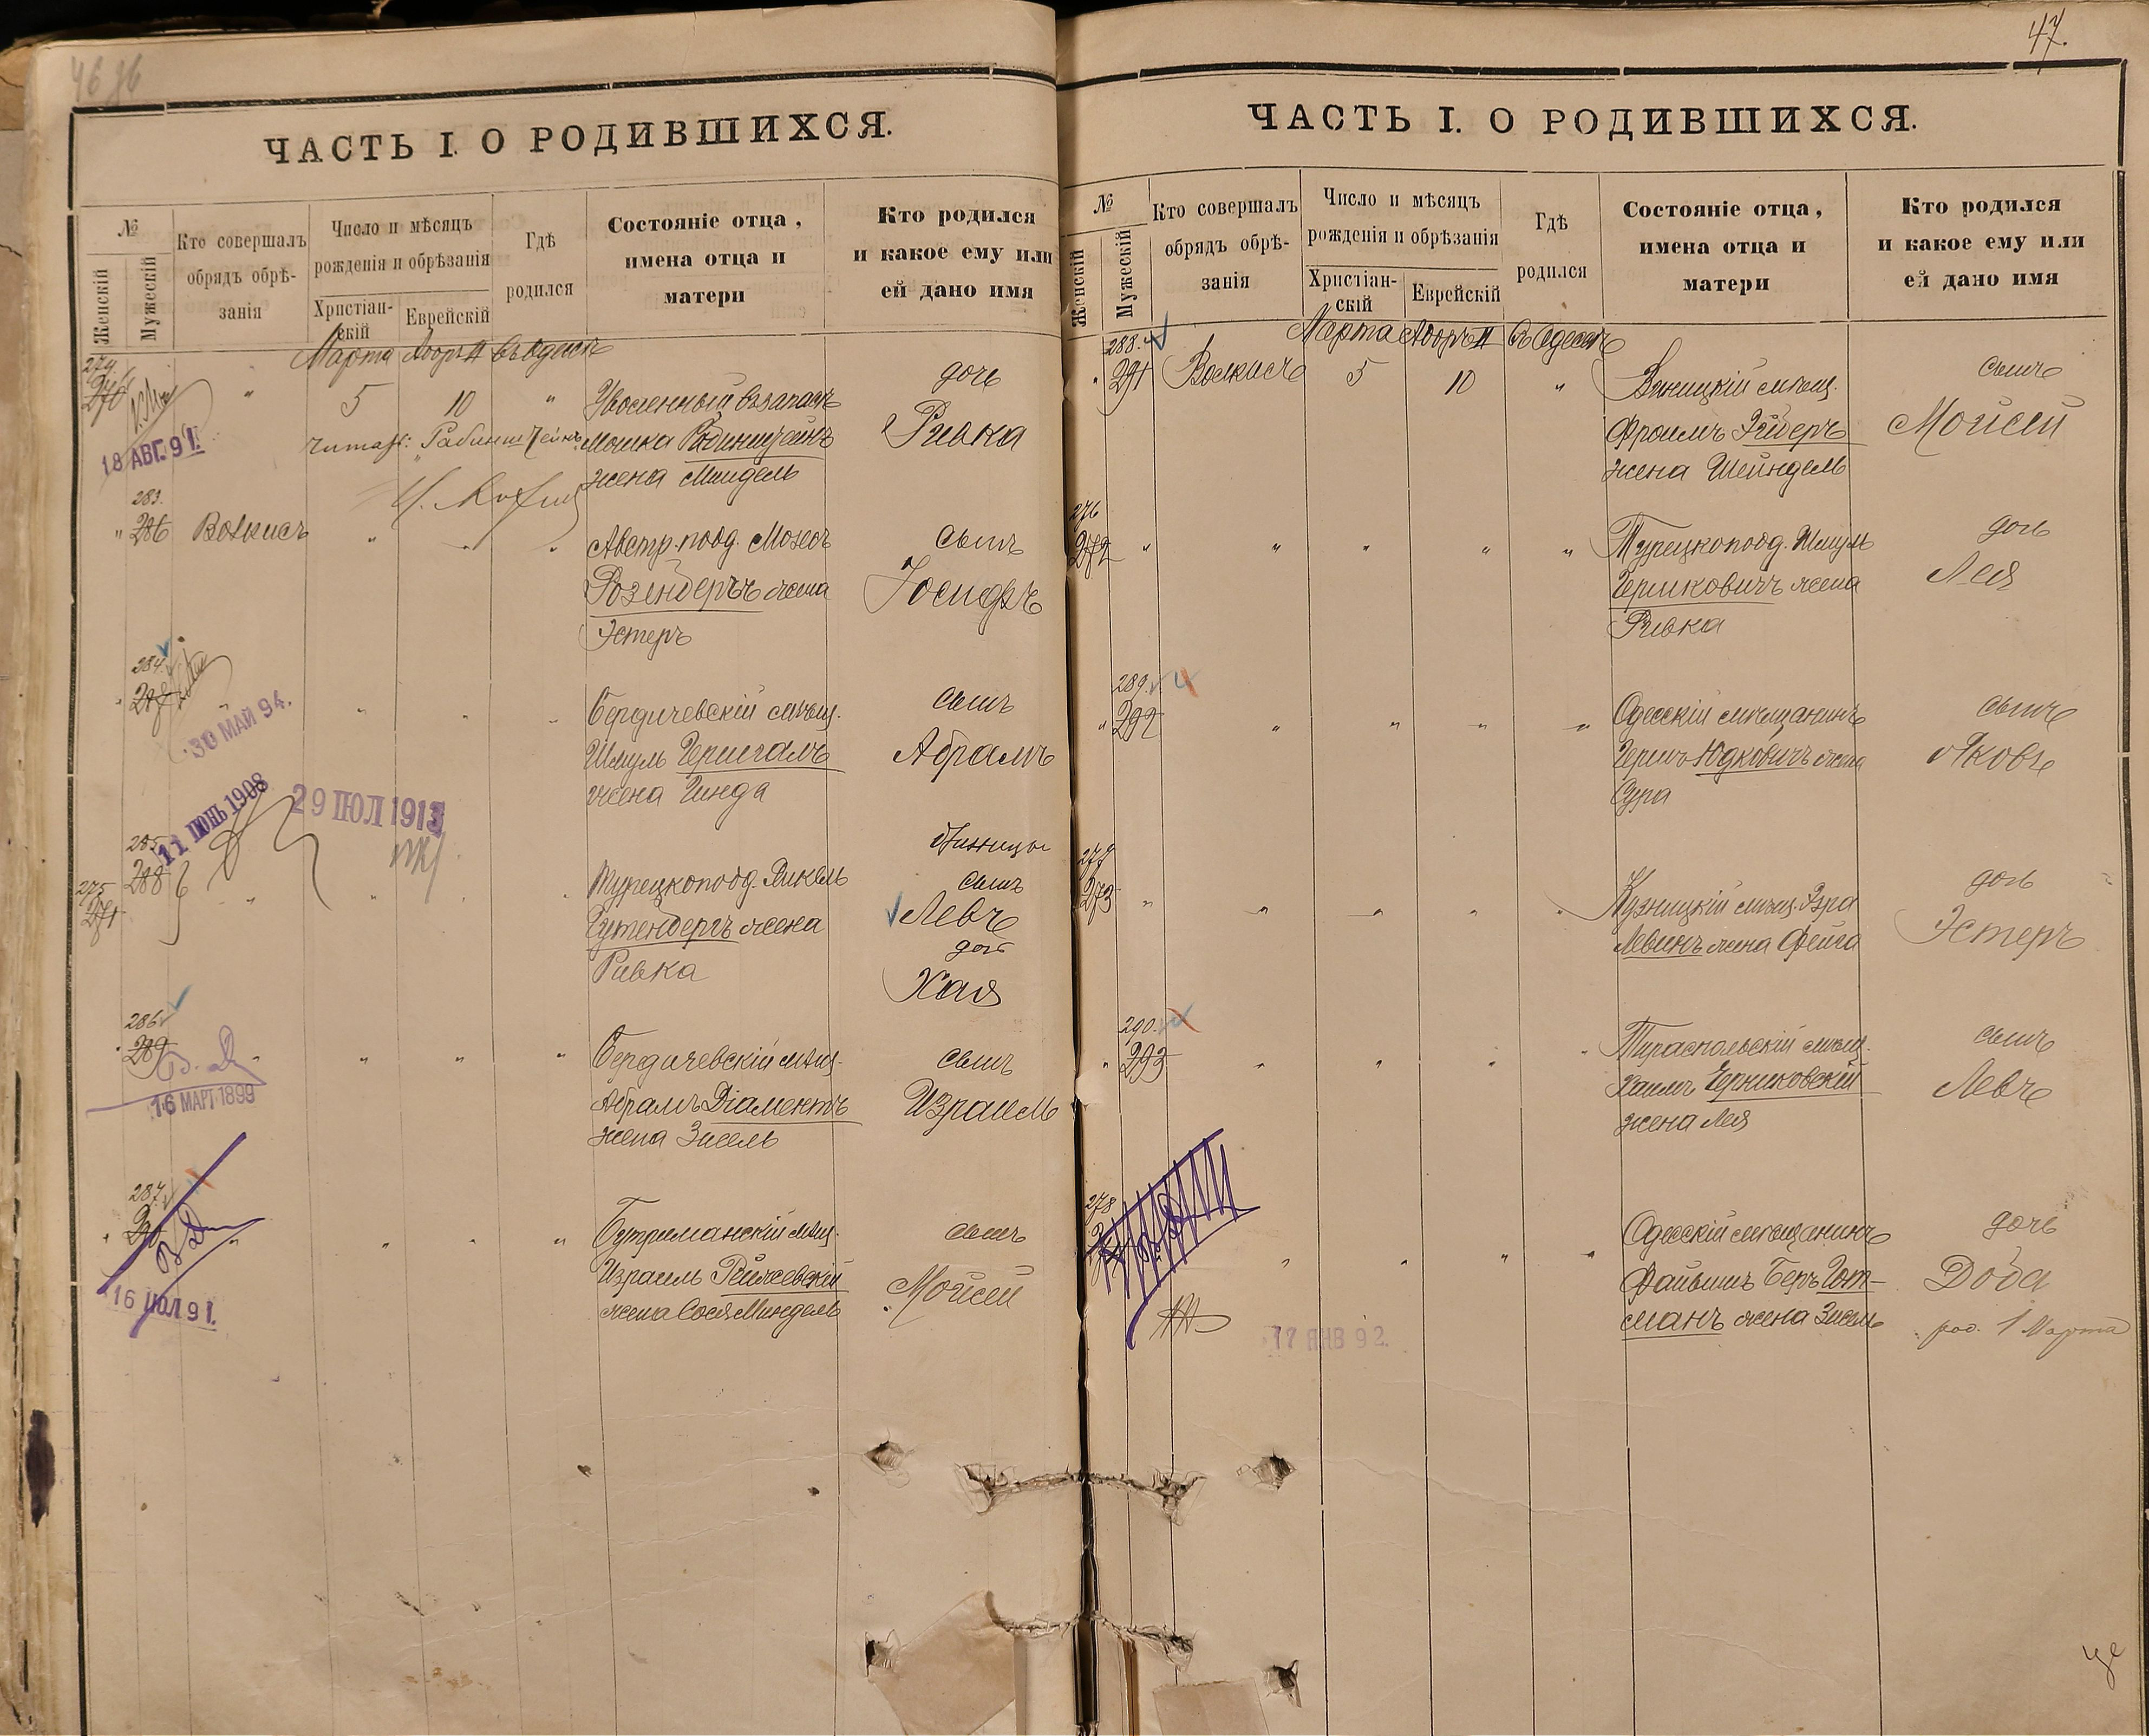 46 об
ЧАСТЬ I. О РОДИВШИХСЯ.
№
Женскій
Мужескій
Кто совершалъ
обрядъ обрѣ-
занія
Число и мѣсяцъ
рожденія и обрѣзанія
Христіан-
скій
Еврейскій
Гдѣ
родился
Состояніе отца,
имена отца и
матери
Кто родился
и какое ему или
ей дано имя
Марта Адоръ II Въ Одессѣ
274.
270
" 5 10 "
Уволенный въ запасъ
Мошка Рабинштейнъ
жена Миндель
дочь
Ривка
читать: Рабинштейнъ
18 АВГ. 91.
283.
" 286 Волкисъ " " "
Австр. подд. Мозесъ
Розенбергъ жена
Эстеръ
сынъ
Іосифъ
284.
287
30 МАЙ 94.
Бердичевскій мѣщ.
Шмуль Герштамъ
жена Гинда
сынъ
Абрамъ
11 ІЮНЬ 1908
29 ІЮЛ 1913
285
288
275
271
Турецкоподд. Янкель
Гутенбергъ жена
Ривка
близнецы
сынъ
Левъ
дочь
Хая
286
289
16 МАРТ 1899
Бердичевскій мѣщ.
Абрамъ Діаментъ
жена Зисель
сынъ
Израиль
287
16 ІЮЛ 91.
Бутриманскій мѣщ.
Израиль Рейжевскій
жена Сося Миндель
сынъ
Мойсей
47.
ЧАСТЬ I. О РОДИВШИХСЯ.
№
Женскій
Мужескій
Кто совершалъ
обрядъ обрѣ-
занія
Число и мѣсяцъ
рожденія и обрѣзанія
Христіан-
скій
Еврейскій
Гдѣ
родился
Состояніе отца,
имена отца и
матери
Кто родился
и какое ему или
ей дано имя
Марта Адоръ II Въ Одессѣ
288.
" 291 Волкисъ 5 10 "
Виницкій мѣщ.
Фроимъ
жена Шейндель
сынъ
Мойсей
276
272 " " " " "
Турецкоподд. Шмуль
Гершковичъ жена
Ривка
дочь
Лея
289.
" 292 " " " "
Одесскій мѣщанинъ
Гершъ Юдковичъ жена
Сура
сынъ
Яковъ
277
273 " " " "
Кузницкій мѣщ. Эзра
Левинъ жена Фейга
дочь
Эстеръ
290.
" 293 " " " "
Тираспольскій мѣщ.
Хаимъ Черниковскій
жена Лея
сынъ
Левъ
278
17 ЯНВ 92.
Одесскій мѣщанинъ
Файвишъ Беръ Гот-
манъ жена Зисель
дочь
Доба
род. 1 Марта